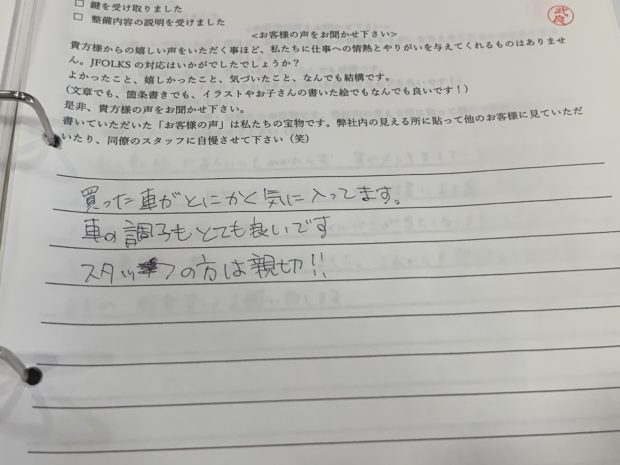 □ 鍵を受け取りました
□ 整備内容の説明を受けました
武良
<お客様の声をお聞かせ下さい>
貴方様からの嬉しい声をいただく事ほど、私たちに仕事への情熱とやりがいを与えてくれるものはありませ
ん。JFOLKS の対応はいかがでしたでしょうか？
よかったこと、嬉しかったこと、気づいたこと、なんでも結構です。
（文章でも、箇条書きでも、イラストやお子さんの書いた絵でもなんでも良いです！）
是非、貴方様の声をお聞かせ下さい。
書いていただいた「お客様の声」は私たちの宝物です。弊社内の見える所に貼って他のお客様に見ていただ
いたり、同僚のスタッフに自慢させて下さい（笑）
買った車がとにかく気に入ってます。
車の調子もとても良いです
スタッフの方は親切!!